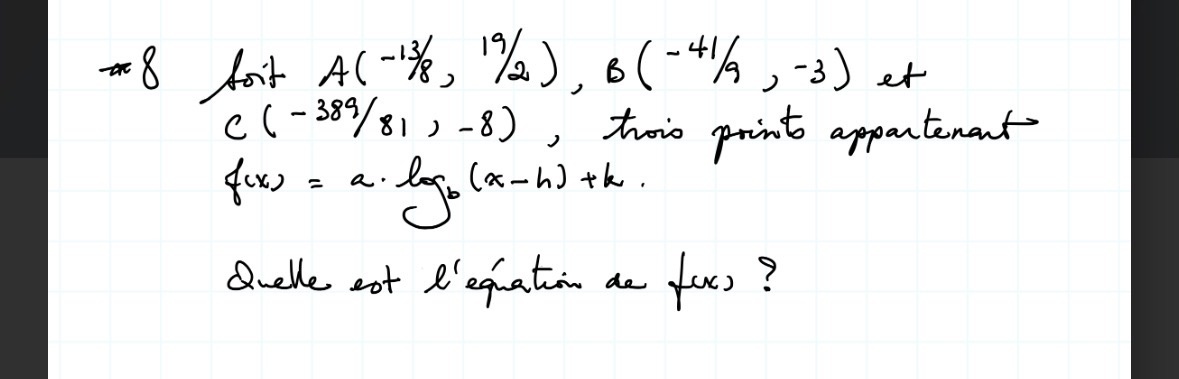 #8 Soit A(-13/8, 19/2), B(-41/9, -3) et
C(-389/81, -8), trois points appartenant
f(x) = a. log_b (x-h) + k.
Quelle est l'équation de f(x) ?